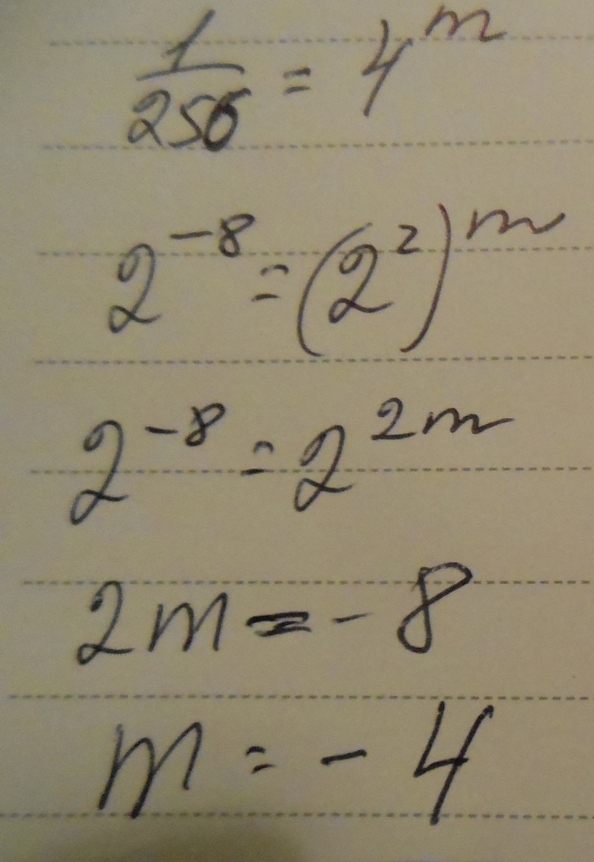 1/256 = 4^m
2^-8 = (2^2)^m
2^-8 = 2^2m
2m = - 8
m = - 4